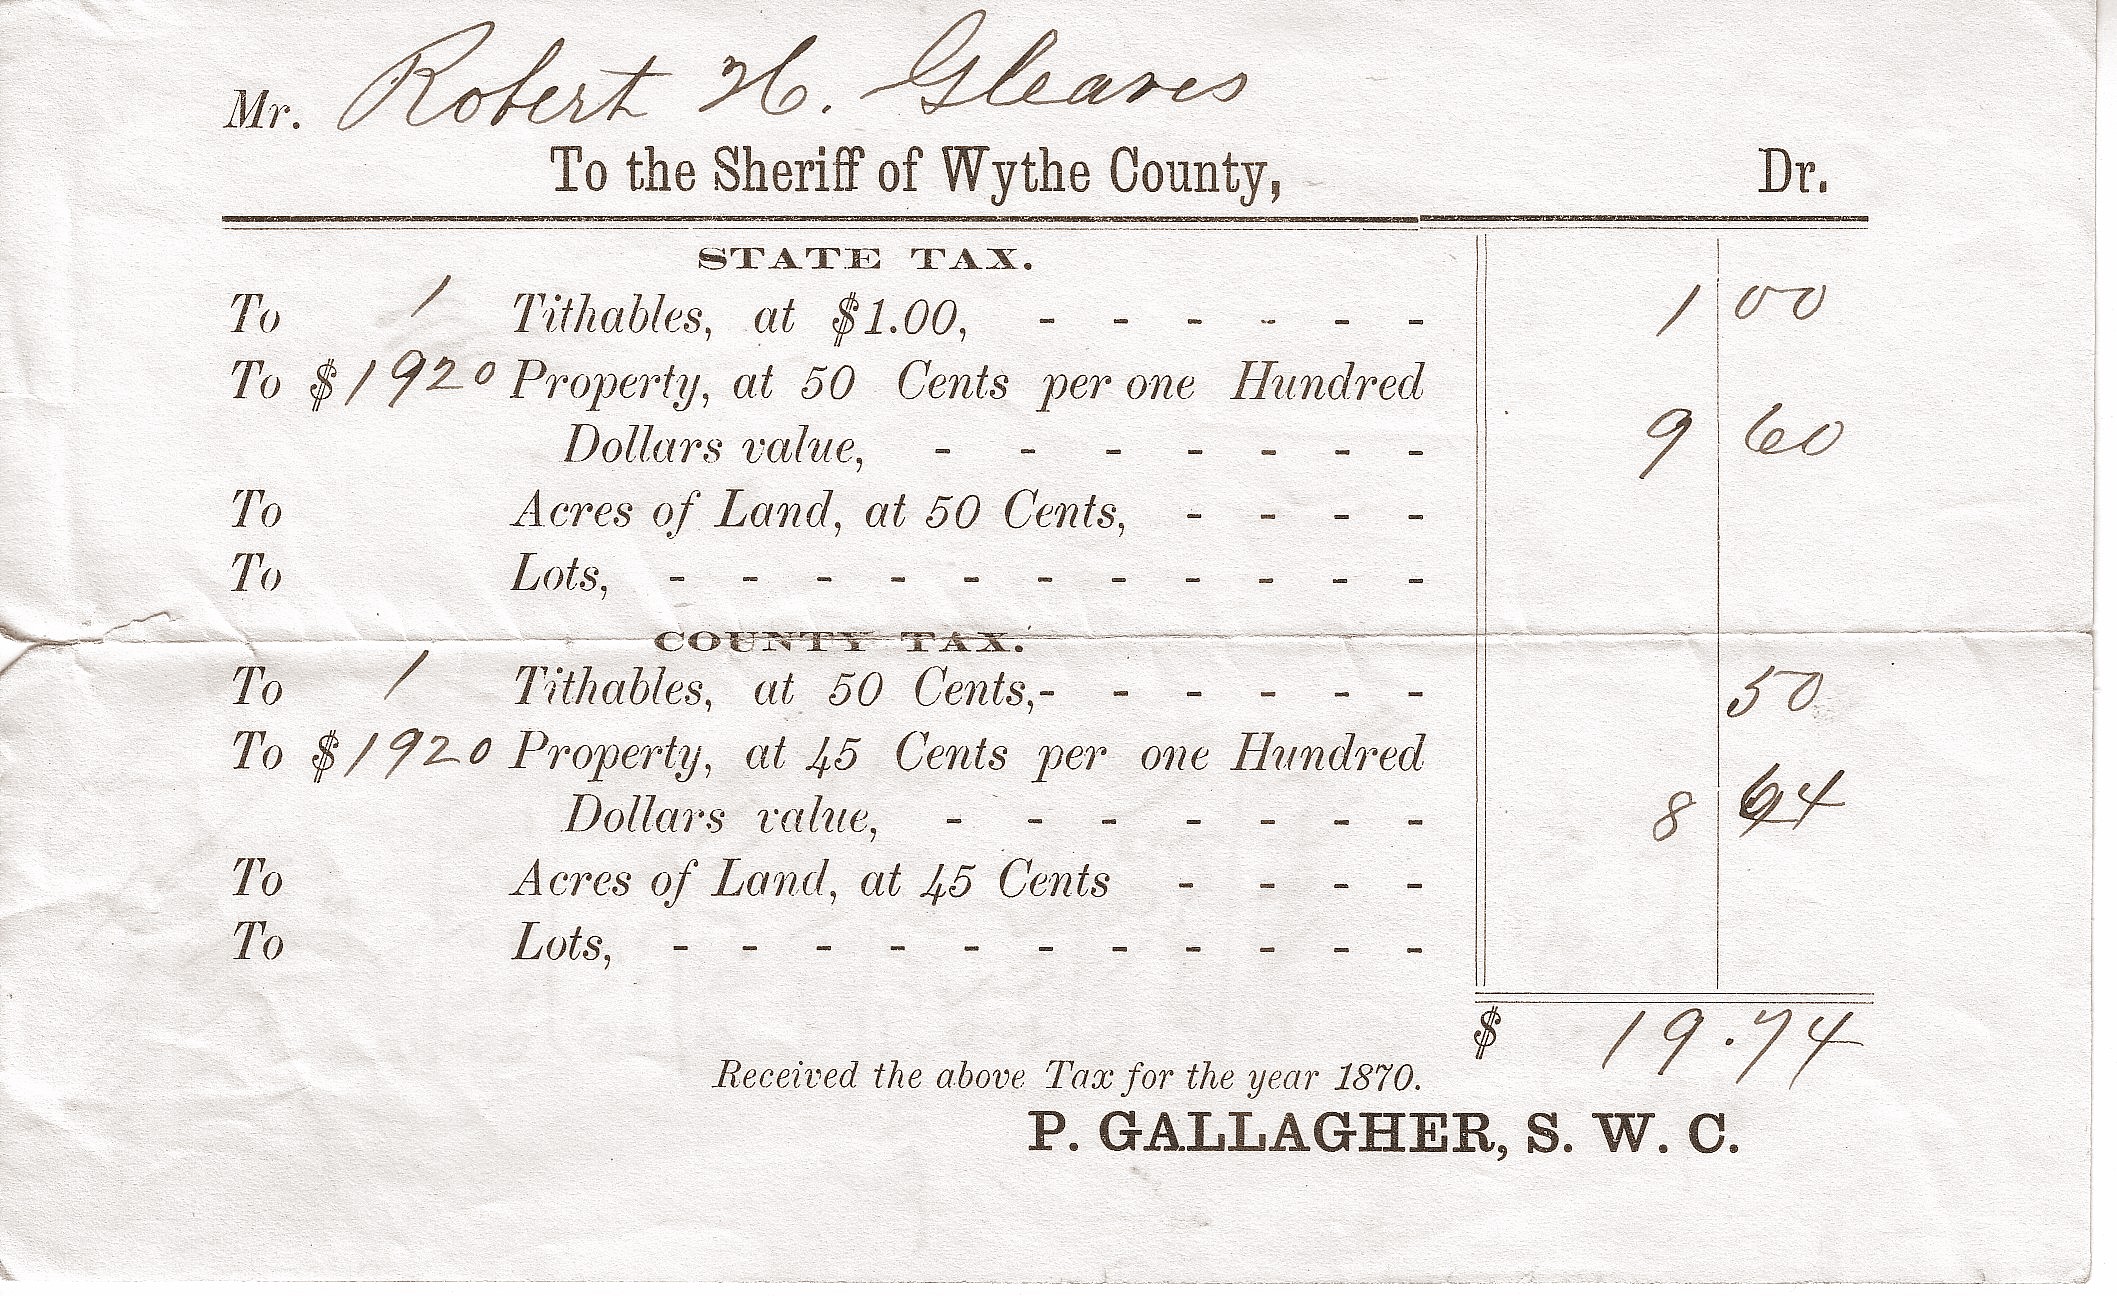 Mr. Robert H. Gleaves
To the Sheriff of Wythe County, Dr.
STATE TAX.
To 1 Tithables, at $1.00, - - - - - - 1 00
To $1920 Property, at 50 Cents per one Hundred
Dollars value, - - - - - - - 9 60
To Acres of Land, at 50 Cents, - - - -
To Lots, - - - - - - - - - - -
COUNTY TAX.
To 1 Tithables, at 50 Cents,- - - - - - 50
To $1920 Property, at 45 Cents per one Hundred
Dollars value, - - - - - - - 8 64
To Acres of Land, at 45 Cents - - - -
To Lots, - - - - - - - - - - -
$ 19.74
Received the above Tax for the year 1870.
P. GALLAGHER, S. W. C.